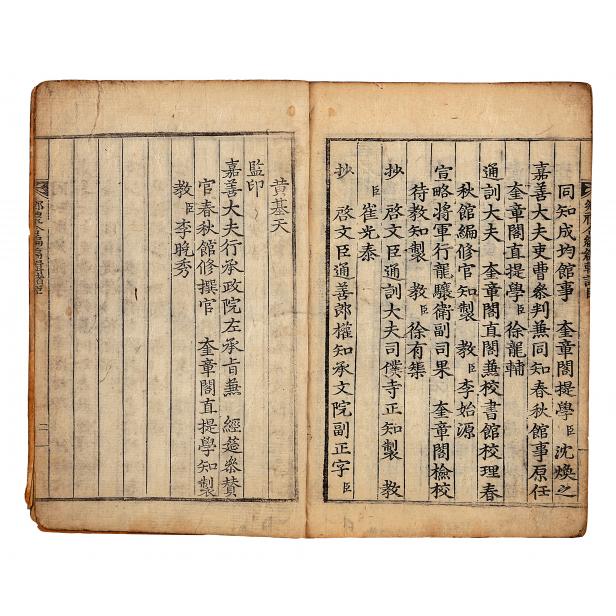 同知成均館事　奎章閣提學臣沈煥之
嘉善大夫吏曹參判兼同知春秋館事原任
奎章閣直提學臣徐龍輔
通訓大夫　奎章閣直閣兼校書館校理春
秋館編修官知製　教臣李始源
宣略將軍行龍驤衛副司果　奎章閣檢校
待教知製　教臣徐有榘
抄　啓文臣通訓大夫司僕寺正知製　教
臣崔光泰
抄　啓文臣通善郎權知承文院副正字臣
黄基天
監印
嘉善大夫行承政院左承旨兼　經筵參贊
官春秋館修撰官　奎章閣直提學知製
教臣李晚秀